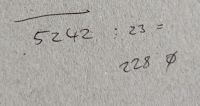 5242 : 23 =
228 φ